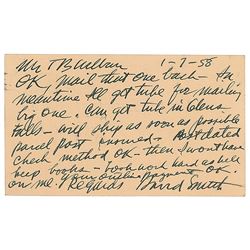 Mr T Balbun 1-7-58
OK, mail that one back - In
meantime I'll get tube for mailing
big one. Can get tube in Glens
Falls - will ship as soon as possible
parcel post insured. - Post dated
check method OK - then I wont have
keep books - book work hard as hell
on me. Your outline payment OK.
Regards David Smith